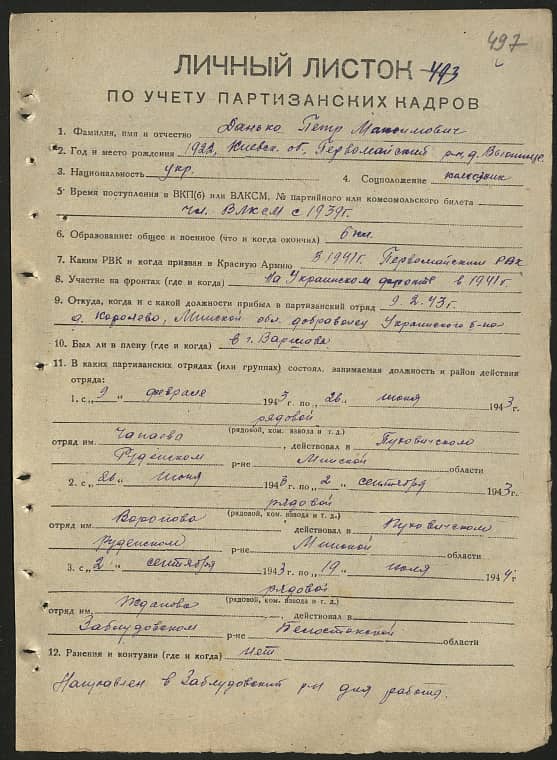 497
ЛИЧНЫЙ ЛИСТОК 493
ПО УЧЕТУ ПАРТИЗАНСКИХ КАДРОВ
1. Фамилия, имя и отчество Данько Петр Максимович
2. Год и место рождения 1922, Киевск. об. Первомайский р-н, д.
3. Национальность укр. 4. Соцположение колхозник
5. Время поступления в ВКП(б) или ВЛКСМ, № партийного или комсомольского билета
чл. ВЛКСМ с 1939 г.
6. Образование: общее и военное (что и когда окончил) 6 кл.
7. Каким РВК и когда призван в Красную Армию В 1941 г. Первомайским РВК
8. Участие на фронтах (где и когда) На Украинском фронте в 1941 г.
9. Откуда, когда и с какой должности прибыл в партизанский отряд 9.2.43 г.
д. Королево, Минской обл. доброволец Украинского б-на
10. Был ли в плену (где и когда) в г. Варшава
11. В каких партизанских отрядах (или группах) состоял, занимаемая должность и район действия
отряда:
1. с „9“ февраля 1943 г. по „26“ июня 1943 г.
рядовой
(рядовой, ком. взвода и т. д.)
отряд им. Чапаева, действовал в Пуховичском
Руденском р-не Минской области
2. с „26“ июня 1943 г. по „2“ сентября 1943 г.
рядовой
(рядовой, ком. взвода и т. д.)
отряд им. Воронова действовал в Пуховичском
Руденском р-не Минской области
3. с „2“ сентября 1943 г. по „19“ июля 1944 г.
рядовой
(рядовой, ком. взвода и т. д.)
отряд им. Жданова, действовал в
Заблудовском р-не Белостокской области
12. Ранения и контузии (где и когда) нет
Направлен в Заблудовский р-н для работы.